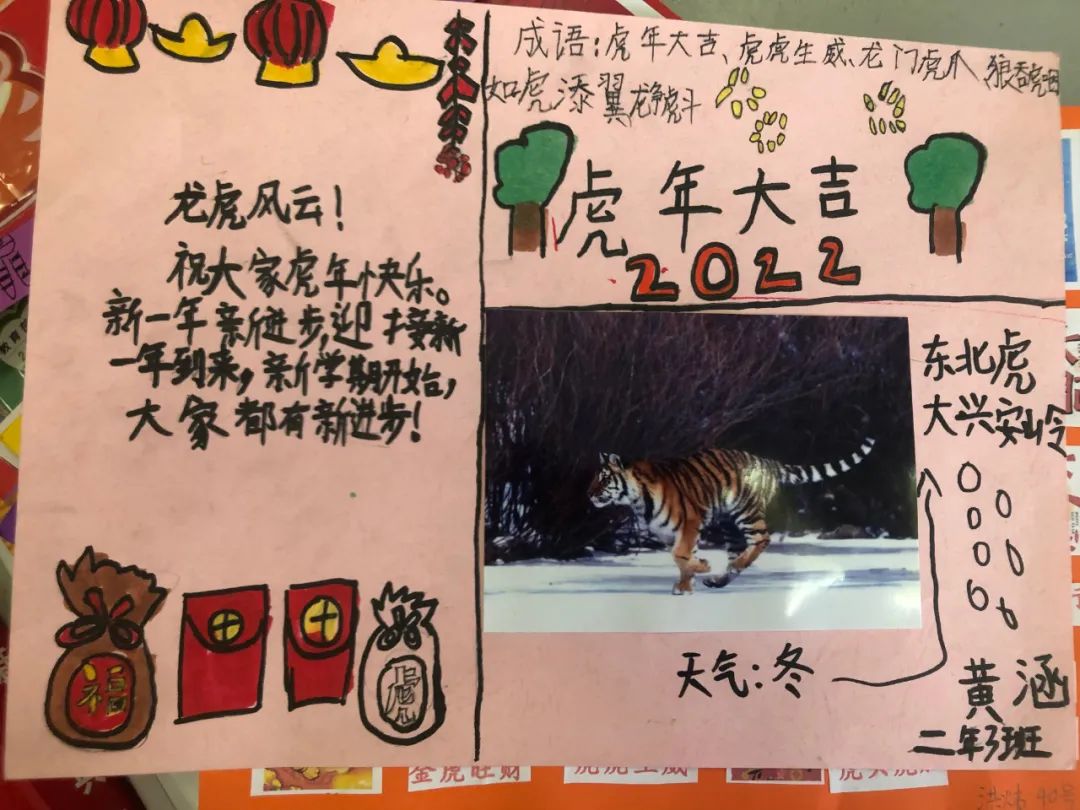 龙虎风云！
祝大家虎年快乐。
新一年新进步,迎接新
一年到来,新学期开始,
大家都有新进步!
福
虎
成语:虎年大吉、虎虎生威、龙门虎爪、狼吞虎咽
如虎添翼 龙争虎斗
虎年大吉
2022
东北虎
大兴安岭
天气:冬
黄涵
二年3班
金虎旺财
虎虎生威